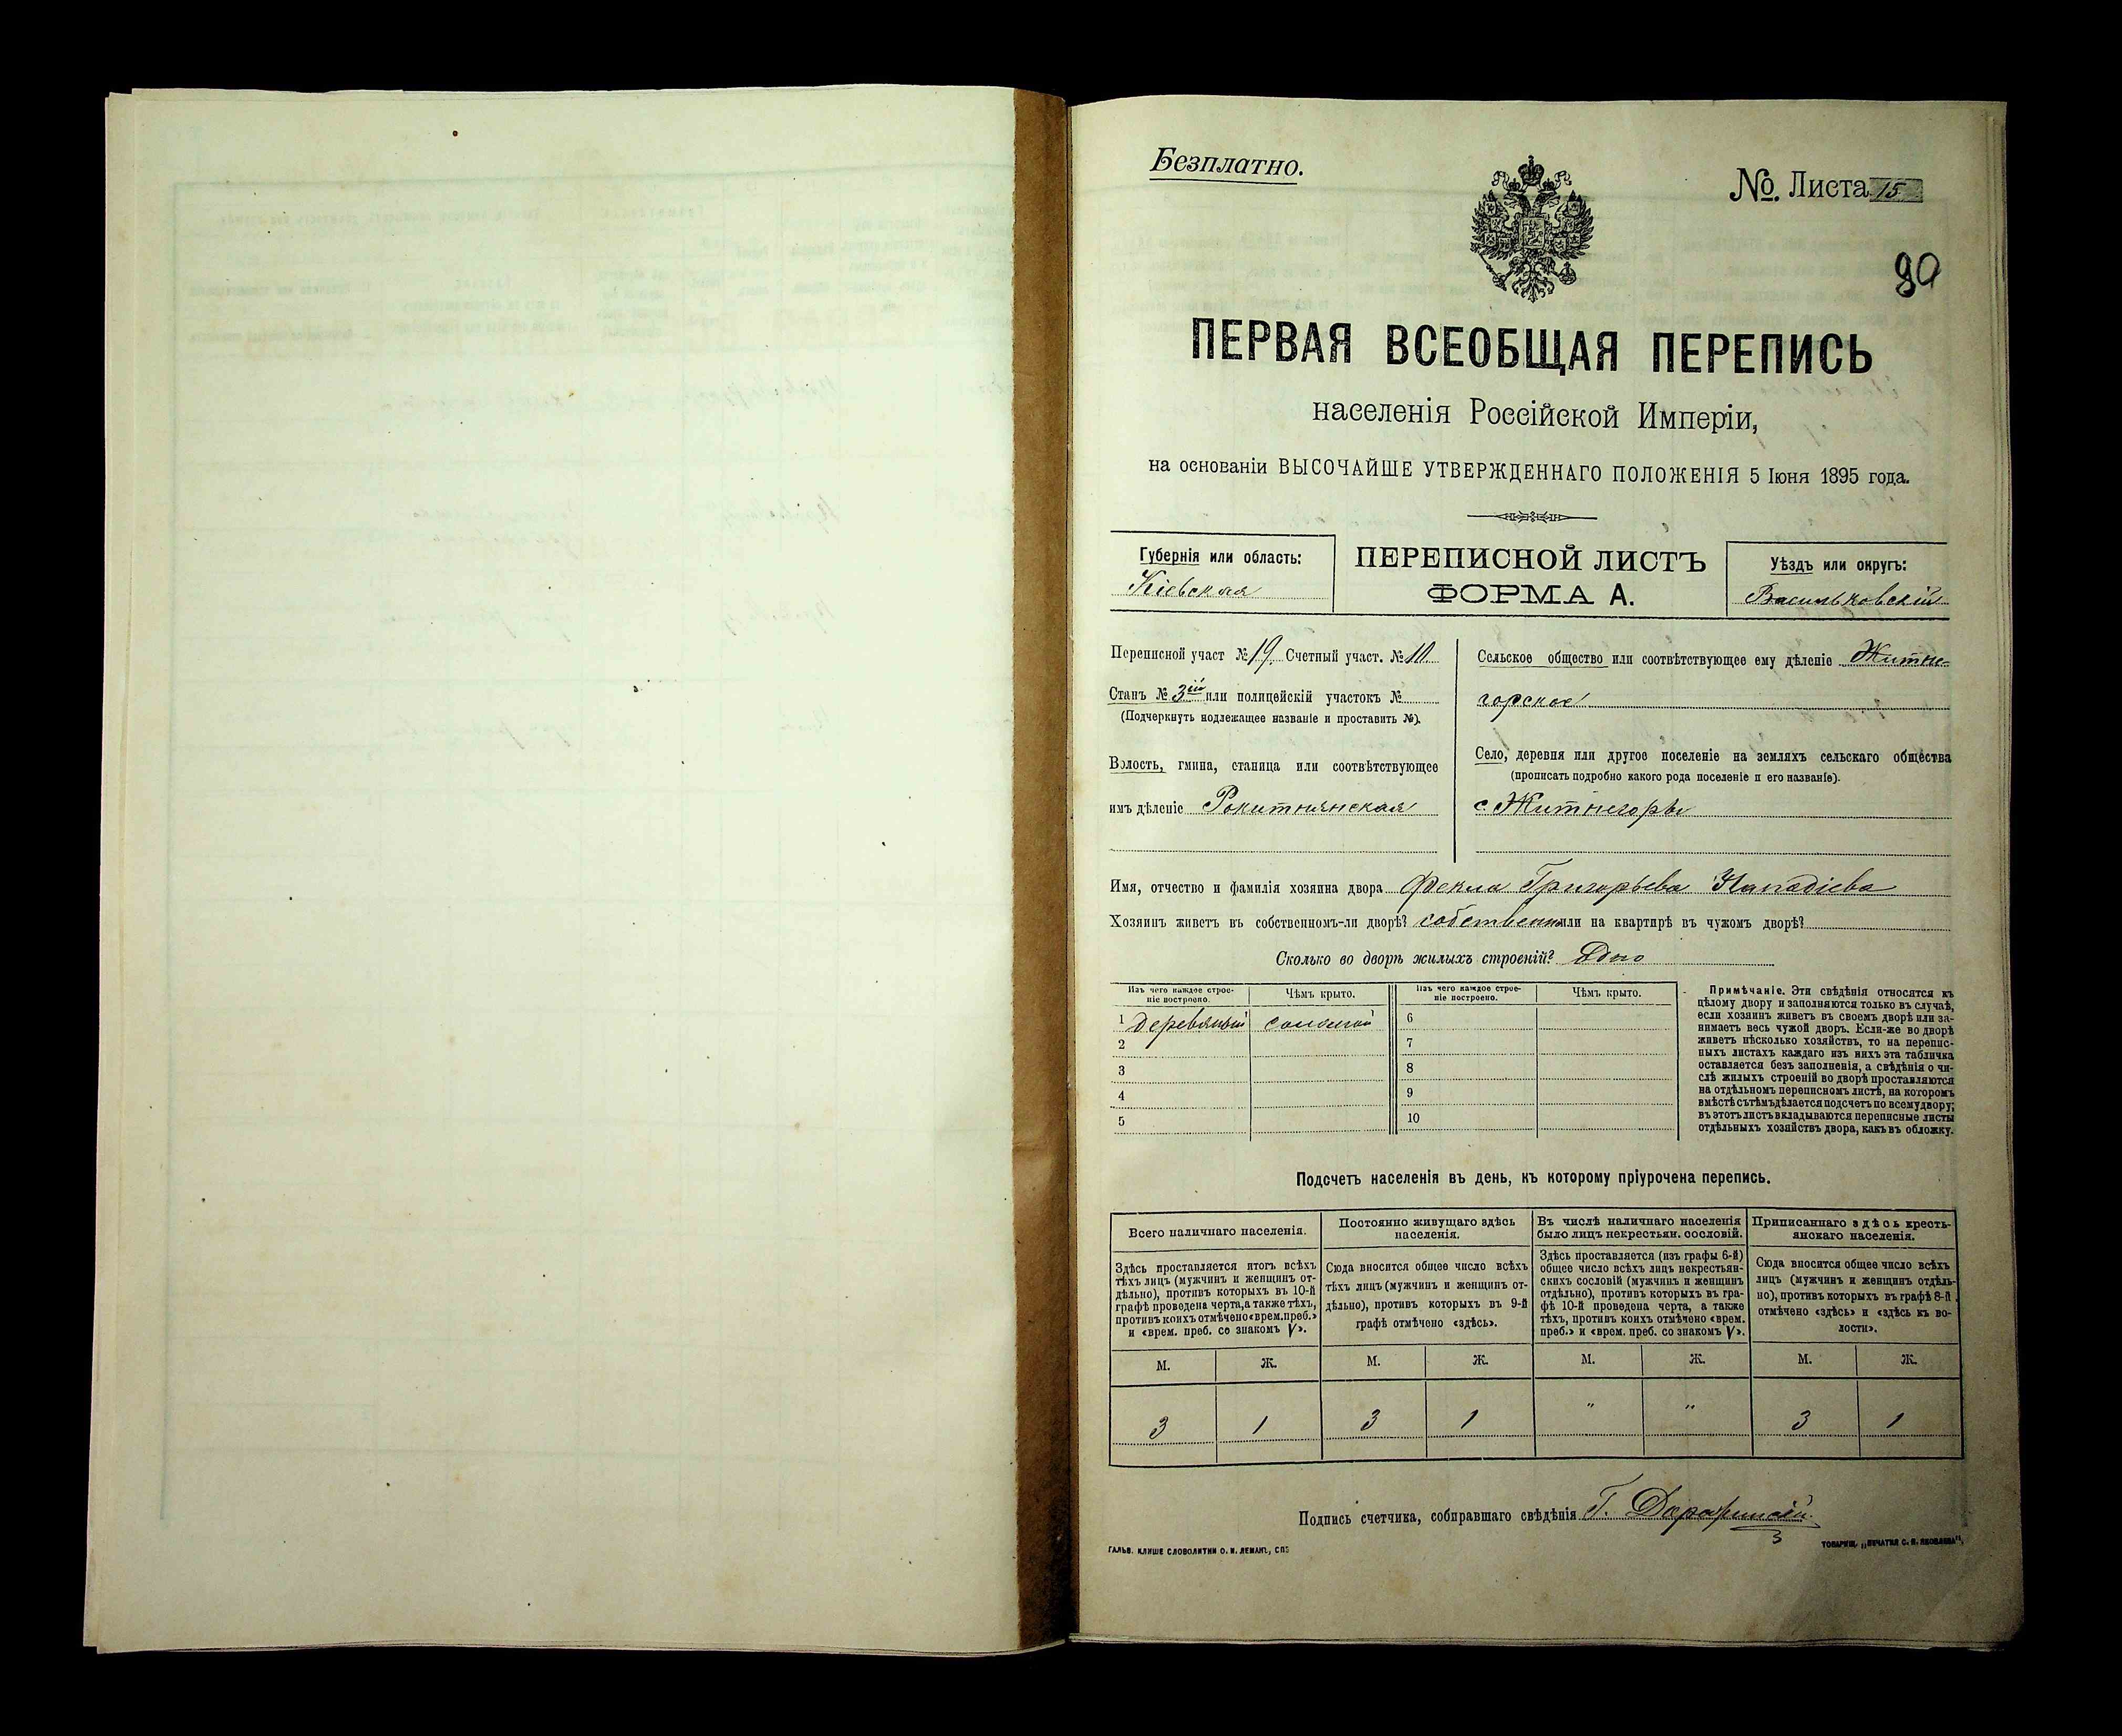 Безплатно.
№. Листа 15
90
ПЕРВАЯ ВСЕОБЩАЯ ПЕРЕПИСЬ
населенія Россійской Имперіи,
на основаніи ВЫСОЧАЙШЕ УТВЕРЖДЕННАГО ПОЛОЖЕНІЯ 5 Іюня 1895 года.
Губернія или область:
Кіевская
ПЕРЕПИСНОЙ ЛИСТЪ
ФОРМА А.
Уѣздъ или округъ:
Васильковскій
Переписной участ № 19 Счетный участ. № 10
Станъ № 3ій или полицейскій участокъ №
(Подчеркнуть надлежащее названіе и проставить №).
Волость, гмина, станица или соотвѣтствующее
имъ дѣленіе Рокитнянская
Сельское общество или соотвѣтствующее ему дѣленіе Житне-
горское
Село, деревня или другое поселеніе на земляхъ сельскаго общества
(прописать подробно какого рода поселеніе и его названіе).
с. Житнегоры
Имя, отчество и фамилія хозяина двора Фекла Григорьева
Хозяинъ живетъ въ собственномъ-ли дворѣ? собственном или на квартирѣ въ чужомъ дворѣ?
Сколько во дворѣ жилыхъ строеній? Одно
Изъ чего каждое строе-
ніе построено.
Чѣмъ крыто.
Изъ чего каждое строе-
ніе построено.
Чѣмъ крыто.
1 деревяный соломой 6
2 7
3 8
4 9
5 10
Примѣчаніе. Эти свѣдѣнія относятся къ
цѣлому двору и заполняются только въ случаѣ,
если хозяинъ живетъ въ своемъ дворѣ или за-
нимаетъ весь чужой дворъ. Если-же во дворѣ
живетъ нѣсколько хозяйствъ, то на перепис-
ныхъ листахъ каждаго изъ нихъ эта табличка
оставляется безъ заполненія, а свѣдѣнія о чи-
слѣ жилыхъ строеній во дворѣ проставляются
на отдѣльномъ переписномъ листѣ, на которомъ
вмѣстѣ съ тѣмъ дѣлается подсчетъ по всему двору;
въ этотъ листъ вкладываются переписные листы
отдѣльныхъ хозяйствъ двора, какъ въ обложку.
Подсчетъ населенія въ день, къ которому пріурочена перепись.
Всего наличнаго населенія.
Здѣсь проставляется итогъ всѣхъ
тѣхъ лицъ (мужчинъ и женщинъ от-
дѣльно), противъ которыхъ въ 10-й
графѣ проведена черта, а также тѣхъ,
противъ коихъ отмѣчено «врем. преб.»
и «врем. преб. со знакомъ V».
Постоянно живущаго здѣсь
населенія.
Сюда вносится общее число всѣхъ
тѣхъ лицъ (мужчинъ и женщинъ от-
дѣльно), противъ которыхъ въ 9-й
графѣ отмѣчено «здѣсь».
Въ числѣ наличнаго населенія
было лицъ некрестьян. сословій.
Здѣсь проставляется (изъ графы 6-й)
общее число всѣхъ лицъ некрестьян-
скихъ сословій (мужчинъ и женщинъ
отдѣльно), противъ которыхъ въ гра-
фѣ 10-й проведена черта, а также
тѣхъ, противъ коихъ отмѣчено «врем.
преб.» и «врем. преб. со знакомъ V».
Приписаннаго здѣсь кресть-
янскаго населенія.
Сюда вносится общее число всѣхъ
лицъ (мужчинъ и женщинъ отдѣль-
но), противъ которыхъ въ графѣ 8-й
отмѣчено «здѣсь» и «здѣсь къ во-
лости».
М. Ж. М. Ж. М. Ж. М. Ж.
3 1 3 1 " " 3 1
Подпись счетчика, собиравшаго свѣдѣнія Г.
ГАЛЬВ. КЛИШЕ СЛОВОЛИТНИ О. И. ЛЕМАНЪ, СПБ
ТОВАРИЩ. „ПЕЧАТНЯ С. П. ЯКОВЛЕВА",